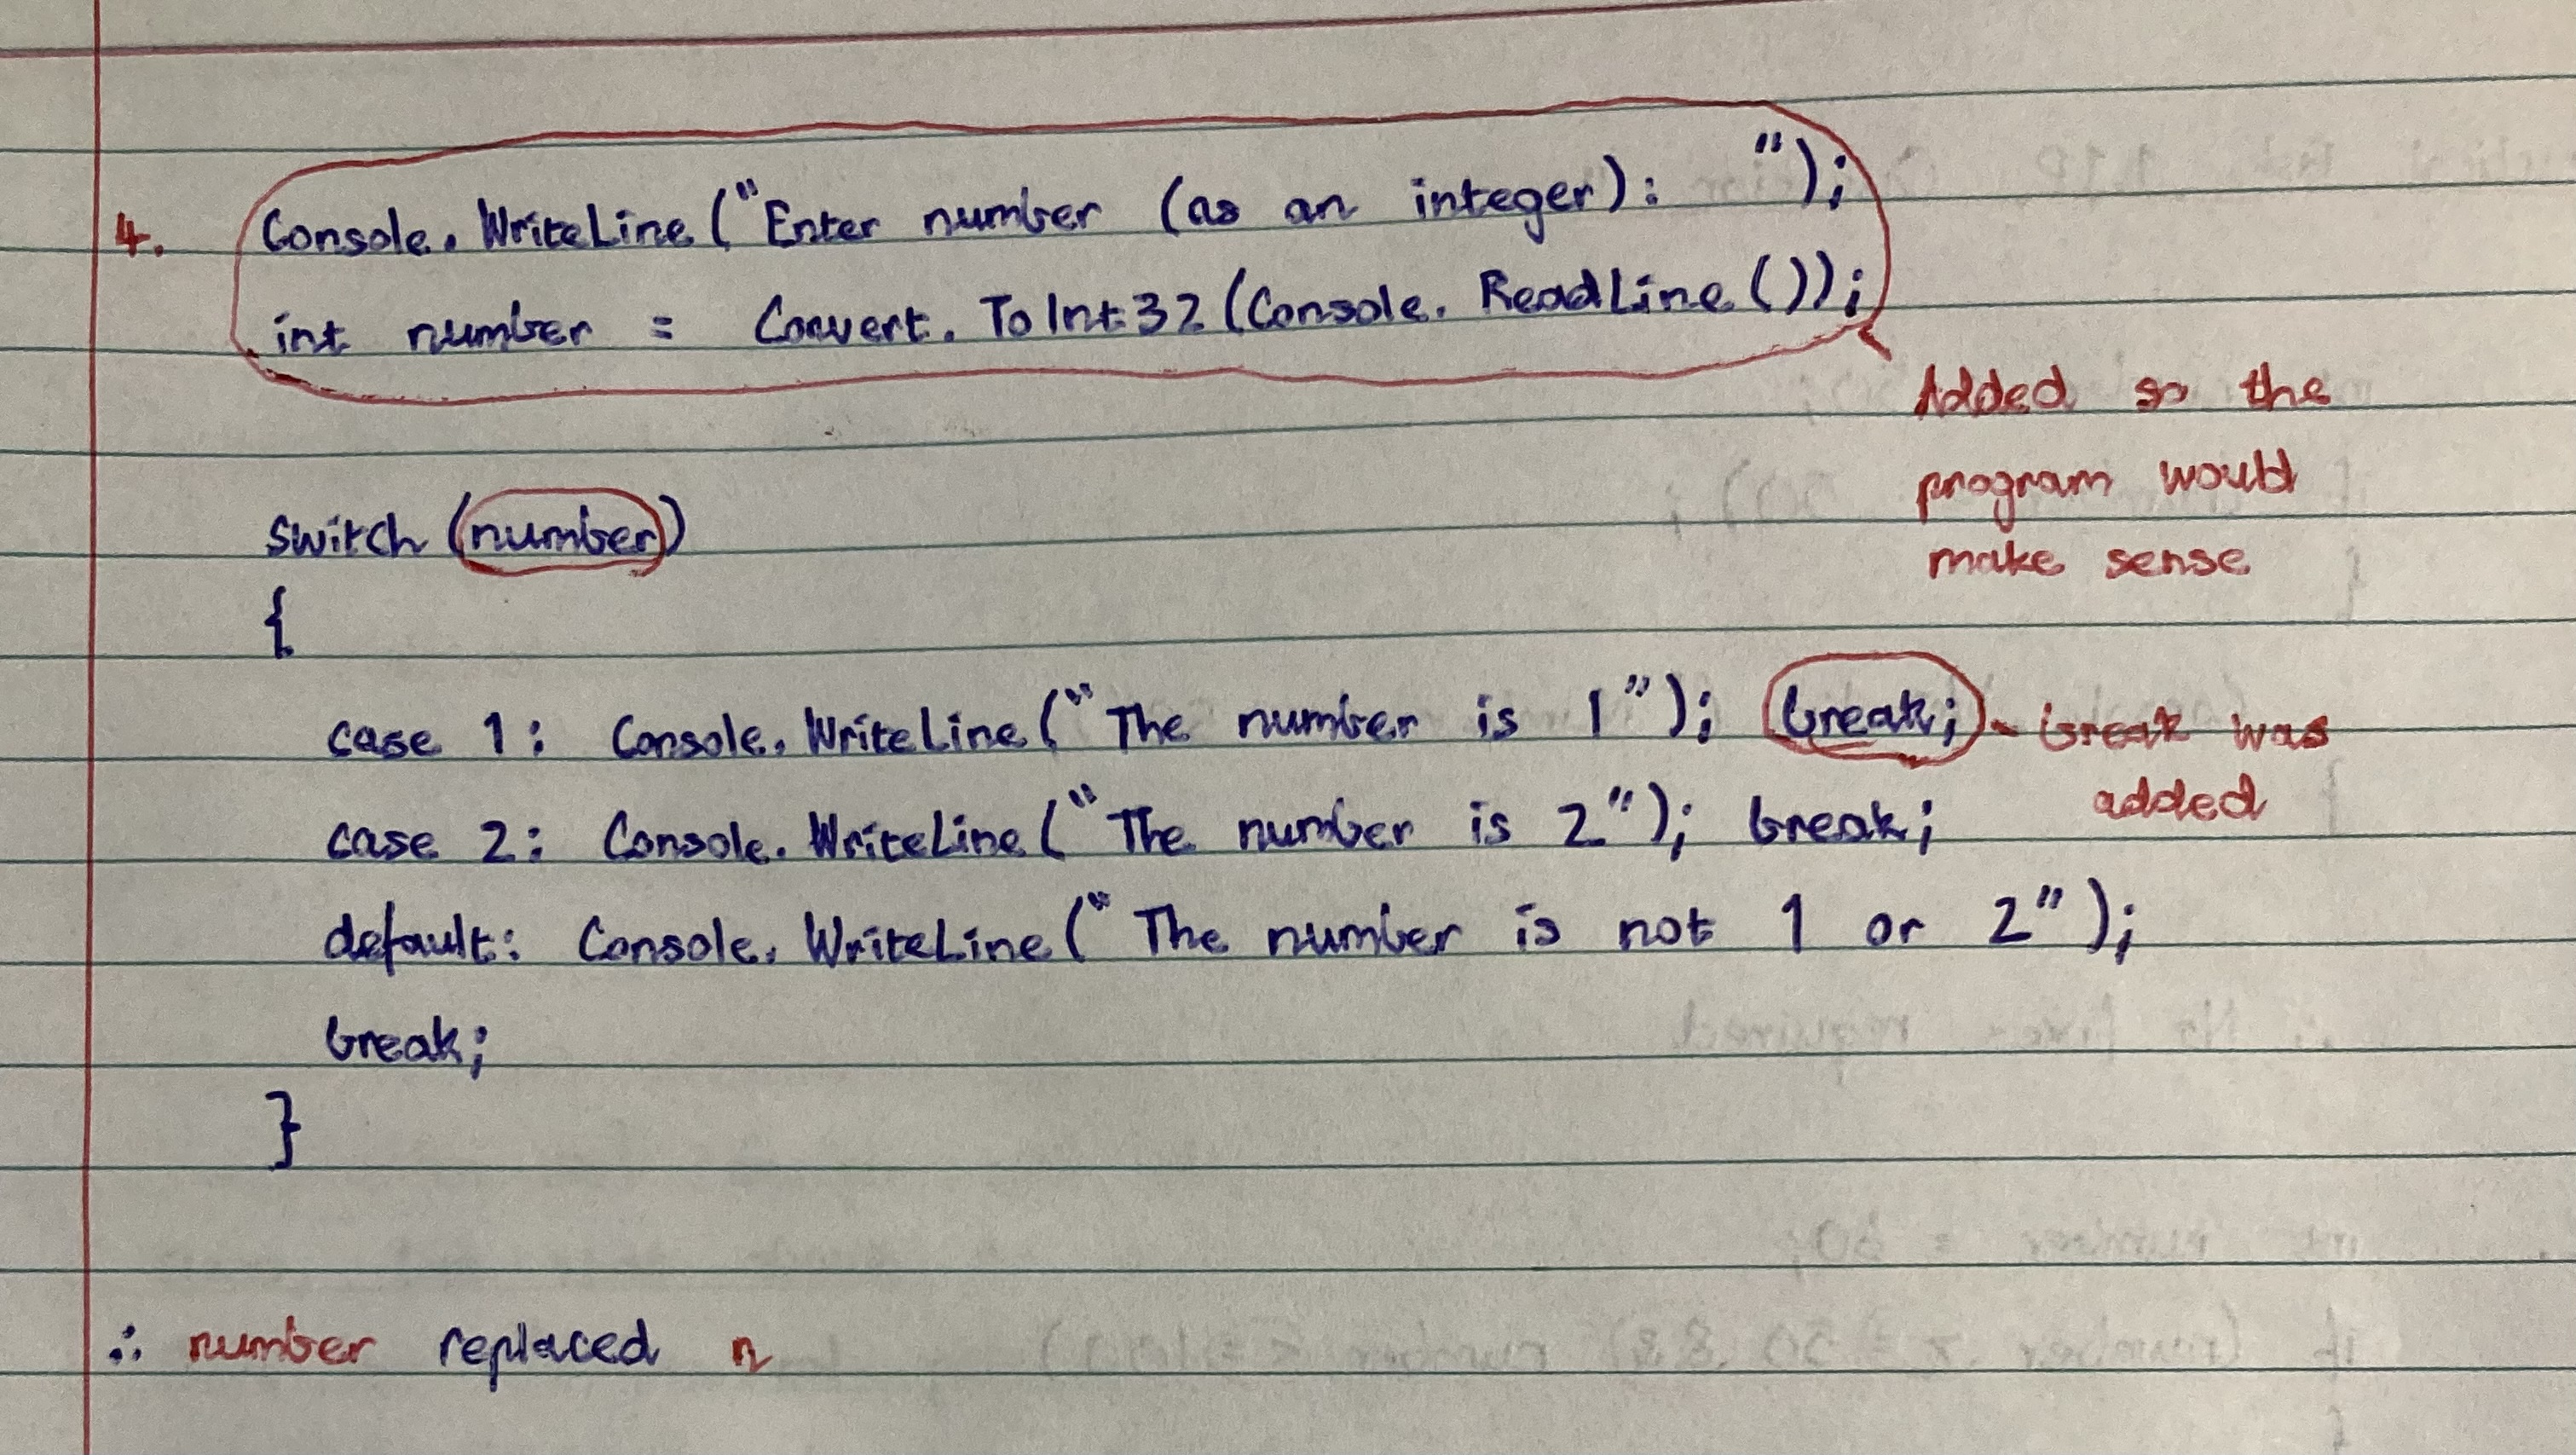 4. Console.WriteLine("Enter number (as an integer): ");
int number = Convert.ToInt32(Console.ReadLine());
Added so the
program would
make sense
switch (number)
{
case 1: Console.WriteLine("The number is 1"); break; - break was
added
case 2: Console.WriteLine("The number is 2"); break;
default: Console.WriteLine("The number is not 1 or 2");
break;
}
∴ number replaced n